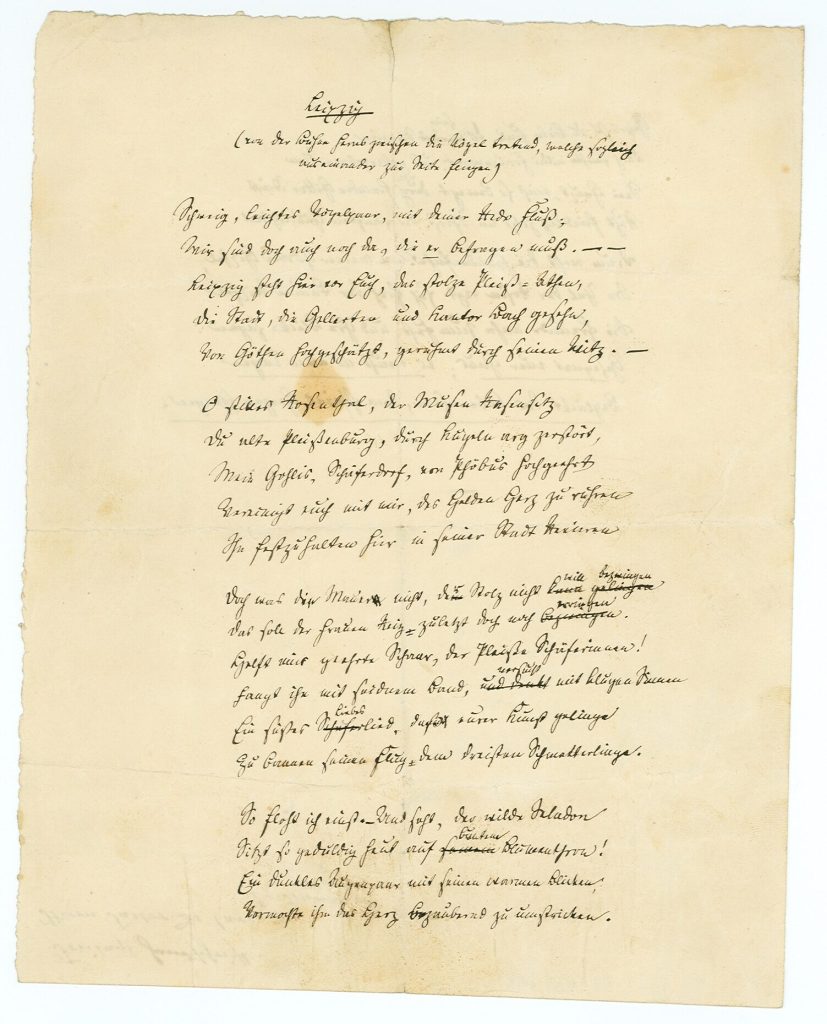 Leipzig
(von der Bühne herab zwischen die Vögel tretend, welche sogleich
auseinander zur Seite hüpfen)
Schweig, leichtes Vögelpaar, mit deiner Rede Fluß,
Wir sind doch auch noch da, die er befragen muß. — —
Leipzig steht hier vor Euch, das stolze Pleiß-Athen,
Die Stadt, die Gellerten und Kantor Bach gesehn,
Von Göthen hochgeschätzt, gerühmt durch seinen Witz. —
O stilles Rosenthal, der Musen Rasensitz
Du alte Pleißenburg, durch Kugeln arg zerstört,
Mein Gohlis, Schäferdorf, von Phöbus hochgeehrt
Vereinigt euch mit mir, des Helden Herz zu rühren
Ihn festzuhalten hier in seiner Stadt Revieren
will bezwingen
Doch was die Mauer nicht, der Stolz nicht kann gelingen
erringen
Das soll der Frauen Reiz - zuletzt doch noch bezwingen.
Helft mir geehrte Schaar, der Pleiße Schäferinnen!
versucht
Fangt ihn mit seidnem Band, und denkt mit klugen Sinnen
Liebes
Ein süßes Schäferlied, daß eurer Kunst gelinge
Zu bannen seinen Flug - dem dreisten Schmetterlinge.
So fleht ich einst. - Und seht, der wilde Seladon
buntem
Sitzt so geduldig heut auf seinem Blumenthron!
Ein dunkles Augenpaar mit seinen warmen Blicken,
Vermochte ihm das Herz bezaubernd zu umstricken.